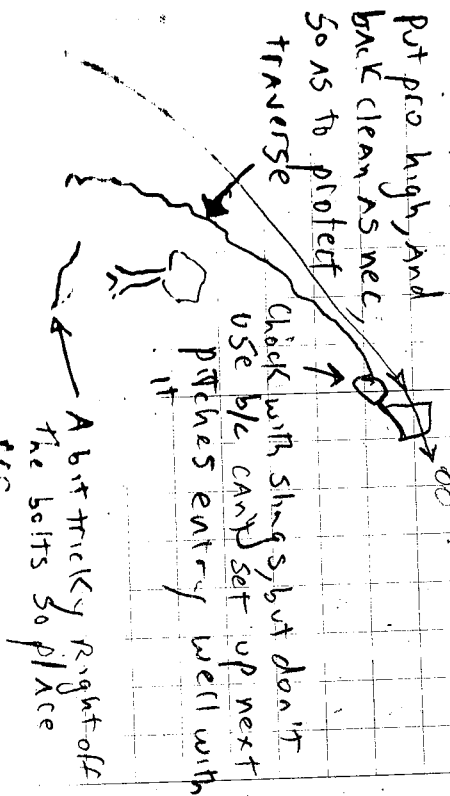 Put pro high, And
back clean as nec,
so as to protect
traverse
Chock with slings, but don't
use b/c can't set up next
pitches entry well with
it
A bit tricky Right off
the bolts so place